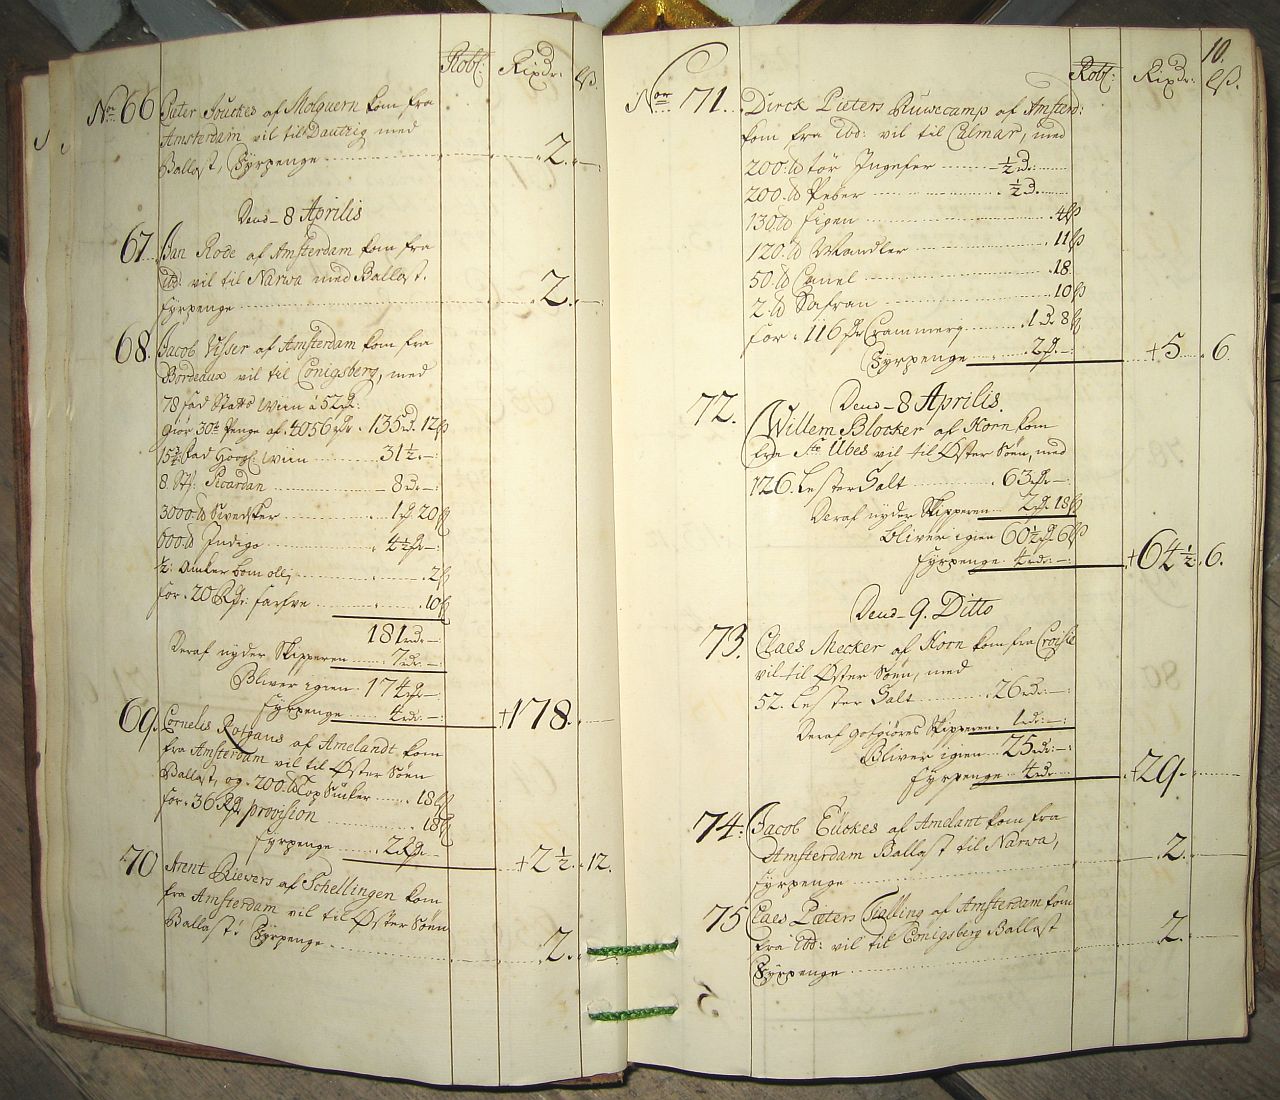 Robl: Rixdr: lß
No 66 Pieter Souckes af Molquern kom fra
Amsterdam vil til Dantzig med
Ballast, Fyrpenge 2.
Dend 8 Aprilis
67. Jan Rode af Amsterdam kom fra
ibd: vil til Narwa med Ballast.
Fyrpenge 2.
68. Jacob Visser af Amsterdam kom fra
Bordeaux vil til Conigsberg, med
78 fad Wiin á 52
Giör 30te Penge af 4056 135 12ß
15½ fad Hoogl: Wiin 31½
8. Picardan 8
3000 lb Svedsker 1 20ß
lb Indigo 4½
½: Anker bomollj 2ß
for 20 farfve 10ß
181
Deraf nyder Skipperen 7
Bliver igien 174
fyrpenge 4 178.
69. Cornelis af Amelandt kom
fra Amsterdam vil til Øster Söen
Ballast, og 200 lb Top Sucker 18ß
for 36 provision 18ß
fyrpenge 2 2½ 12.
70 Arent Rievers af Schellingen kom
fra Amsterdam vil til Øster Söen
Ballast: Fyrpenge 2.
10.
Robl: Rixdr: lß.
No 71. Dirck Pieters Ruwecamp af Amsterd:
kom fra ibd: vil til Calmar, med
200 lb tör Ingefer ½
200 lb Peber ½
130 lb Figen 4ß
120 lb Mandler 11ß
50 lb Canel 18
2 lb Safran 10ß
for 116 Crammerij 1 8ß
Fyrpenge 2 5. 6.
Dend 8 Aprilis.
72. Willem Blocker af Horn kom
fra Ste Ubes vil til Øster Söen, med
126. Lester Salt 63
Deraf nyder Skipperen 2 18ß
bliver igien 60½ 6ß
fyrpenge 4 64½ 6.
Dend 9. Ditto
73. Claes Mecker af Horn kom fra Croisie
vil til Øster Söen, med
52. Lester Salt 26
Deraf Skipperen 1
Bliver igien 25
fyrpenge 4 29.
74: Jacob Eückes af Amelant kom fra
Amsterdam Ballast til Narwa,
fyrpenge 2.
75 Claes Pieters Stalling af Amsterdam kom
fra ibd: vil til Conigsberg Ballast
Fyrpenge 2.